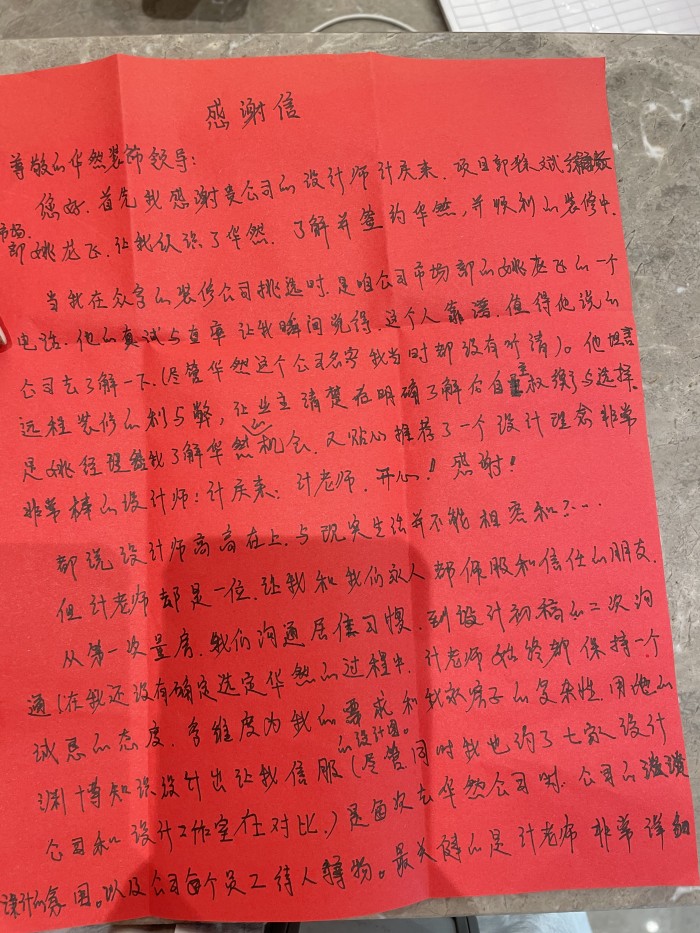 感谢信
尊敬的华然装饰领导:
您好.首先我感谢贵公司的设计师计庆来.项目部
市场.
部姚龙飞.让我认识了华然.了解并签约华然,并顺利的装修中.
当我在众多的装修公司挑选时.是咱公司市场部的姚龙飞的一个
电话.他的真诚与直率让我瞬间觉得.这个人靠谱.值得他说的
公司去了解一下.(尽管华然这个公司名字我当时都没有听清)。他
远程装修的利与弊,让业主清楚在明确了解后自主权衡与选择
是姚经理给我了解华然机会.又贴心推荐了一个设计理念非常
非常棒的设计师:计庆来:计老师.开心!感谢!
都说设计师高高在上.与现实生活并不能相容和……
但计老师却是一位.让我和我们家人都佩服和信任的朋友.
从第一次量房.我们沟通居住习惯.到设计初稿的二次沟
通(在我还没有确定选定华然的过程中.计老师始终都保持一个
诚恳的态度.多维度为我的要求和我家房子的复杂性.用他的
渊博知识设计出让我信服的设计图。(尽管同时我也约了七家设计
公司和设计工作室在对比.)是每次去华然公司时.公司的
设计的氛围。以及公司每个员工待人接物。最关键的是计老师非常详细